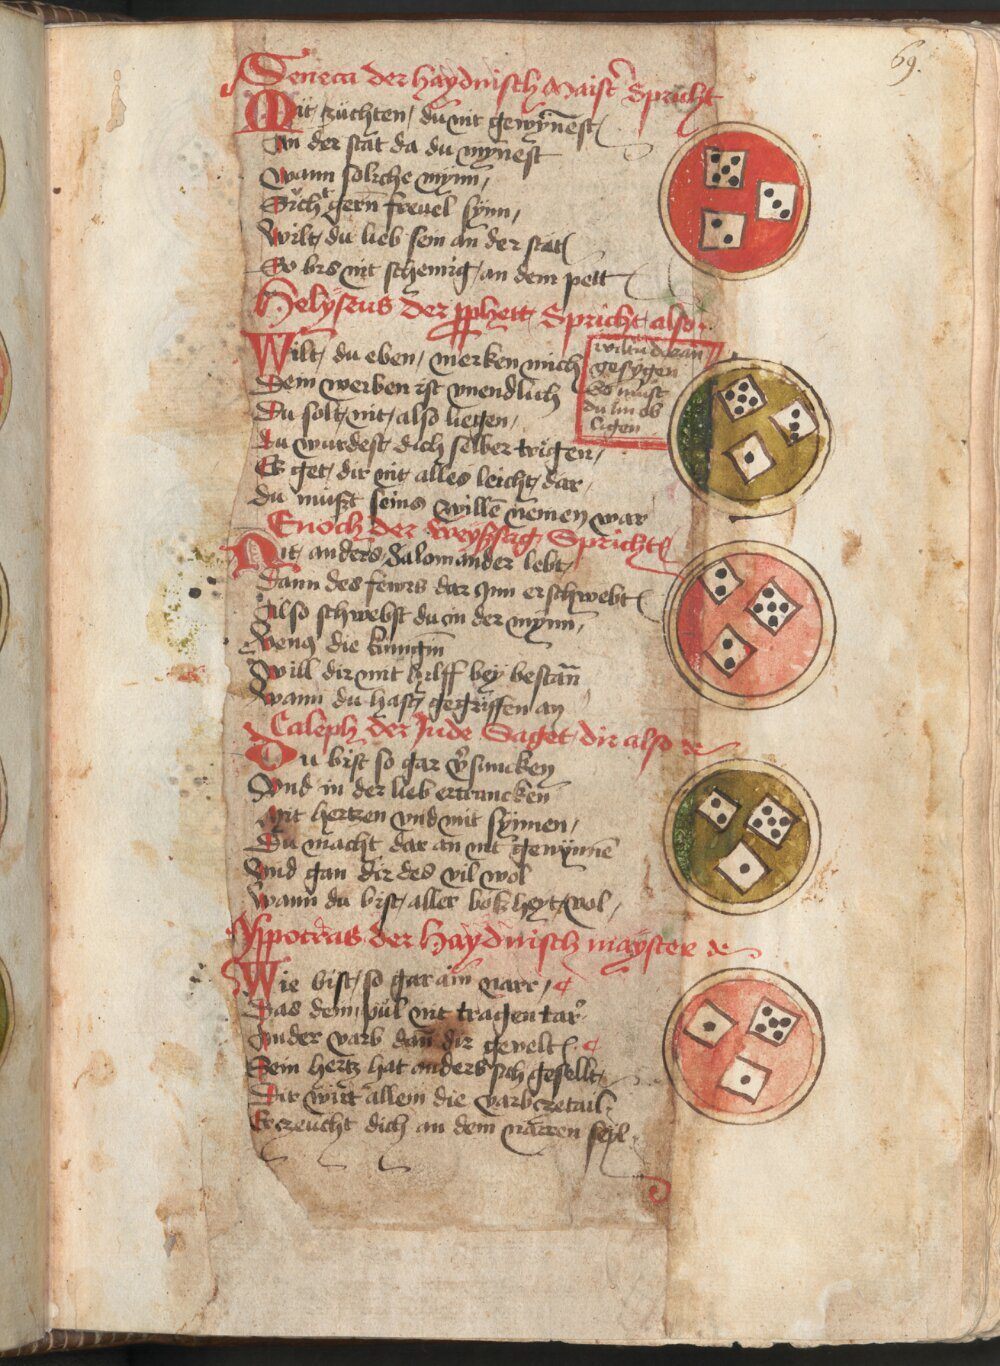 69.
Seneca der haydnisch Maist̄ Spricht
Mit züchten, du nit gewӱnnest
An der stat da du mynest
Wann soliche mynn,
Sücht gern frevel synn,
Wilt, du lieb sein an der stat
So bis nit schemig, an dem pett
Helyseus der pphett Spricht also.
Wilt, du eben, merken mich
Dein werben ist unendlich
Du solt, nit, also liegen,
Du wurdest, dich selber trigen,
Es get, dir nit alles leicht, dar,
du must seins willē nemen war
wiltu daran
gesygen
So must
du im ob
ligen
Enoch der weyssag Spricht
Nit, anders, Salomander lebt,
Dann des fewrs dar Inn er schwebt
Also schwebst du in der mynn,
Venus die kunigin
Will dir mit hilff bey bestan̄
Wann du hast, gegriffen an
Caleph der Jude Saget, dir also
Du bist so gar v̄suncken
Vnd in der lieb ertruncken
Mit hertzen vnd mit synnen,
Du macht dar an nit gewynnē
Vnd gan dir des vil wol
Wann du bist, aller boszheyt, vol,
Yppocras der haydnisch mayster
Wie bist, so gar ain narr,
Das dein, nit tragen tar
Ander varb dan̄ dir gevelt
Sein hertz hat anders sich gesellt,
Dir wirt allein die varb zetail,
Er zeucht dich an dem narren seyl.